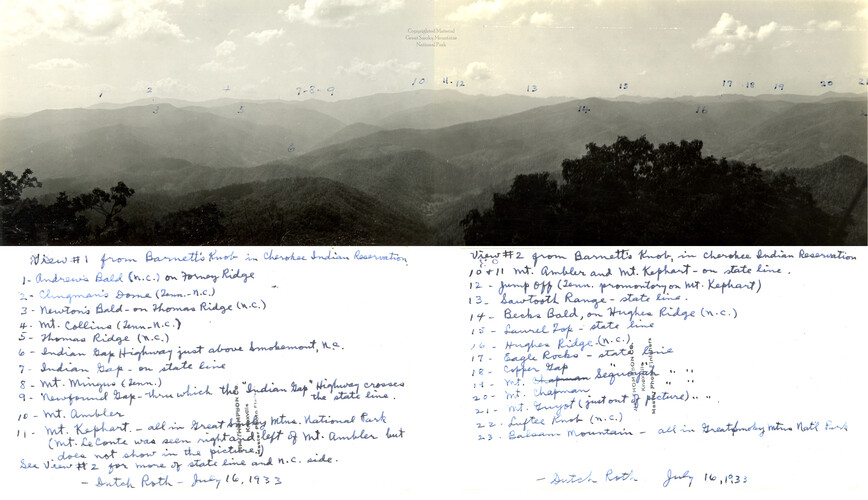 Copyrighted National
Great Smoky Mountains
National Park
1 2 4 7-8-9 10 11-12 13 15 17 18 19 20 21
5 3 6 14 16
View #1 from Barnett's Knob in Cherokee Indian Reservation
1- Andrews Bald (N.C.) on Forney Ridge
2- Clingman's Dome (Tenn.-N.C.)
3- Newton's Bald - on Thomas Ridge (N.C.)
4- Mt. Collins (Tenn.-N.C.)
5- Thomas Ridge (N.C.)
6- Indian Gap Highway just above Smokemont, N.C.
7- Indian Gap - on state line
8- Mt. Mingus (Tenn.)
9- Newfound Gap - thru which the "Indian Gap" Highway crosses
the state line.
10- Mt. Ambler
11- Mt. Kephart. - all in Great Smoky Mtns. National Park
(Mt. LeConte was seen right and left of Mt. Ambler but
does not show in the picture.)
See View #2 for more of state line and N.C. side.
- Dutch Roth - July 16, 1933
View #2 from Barnett's Knob, in Cherokee Indian Reservation
N.C.
10 + 11 Mt. Ambler and Mt. Kephart - on state line.
12 - Jump Off (Tenn. promontory on Mt. Kephart)
13 - Sawtooth Range - state line.
14 - Becks Bald, on Hughes Ridge (N.C.)
15 - Laurel Top - state line
16 - Hughes Ridge (N.C.)
17 - Eagle Rocks - state line
18 - Copper Gap " "
19 - Mt. Chapman Sequoyah " "
20 - Mt. Chapman
21 - Mt. Guyot (just out of picture) " "
22 - Luftee Knob (N.C.)
23 - Balsam Mountain - all in Great Smoky Mtns Nat'l Park
- Dutch Roth July 16, 1933